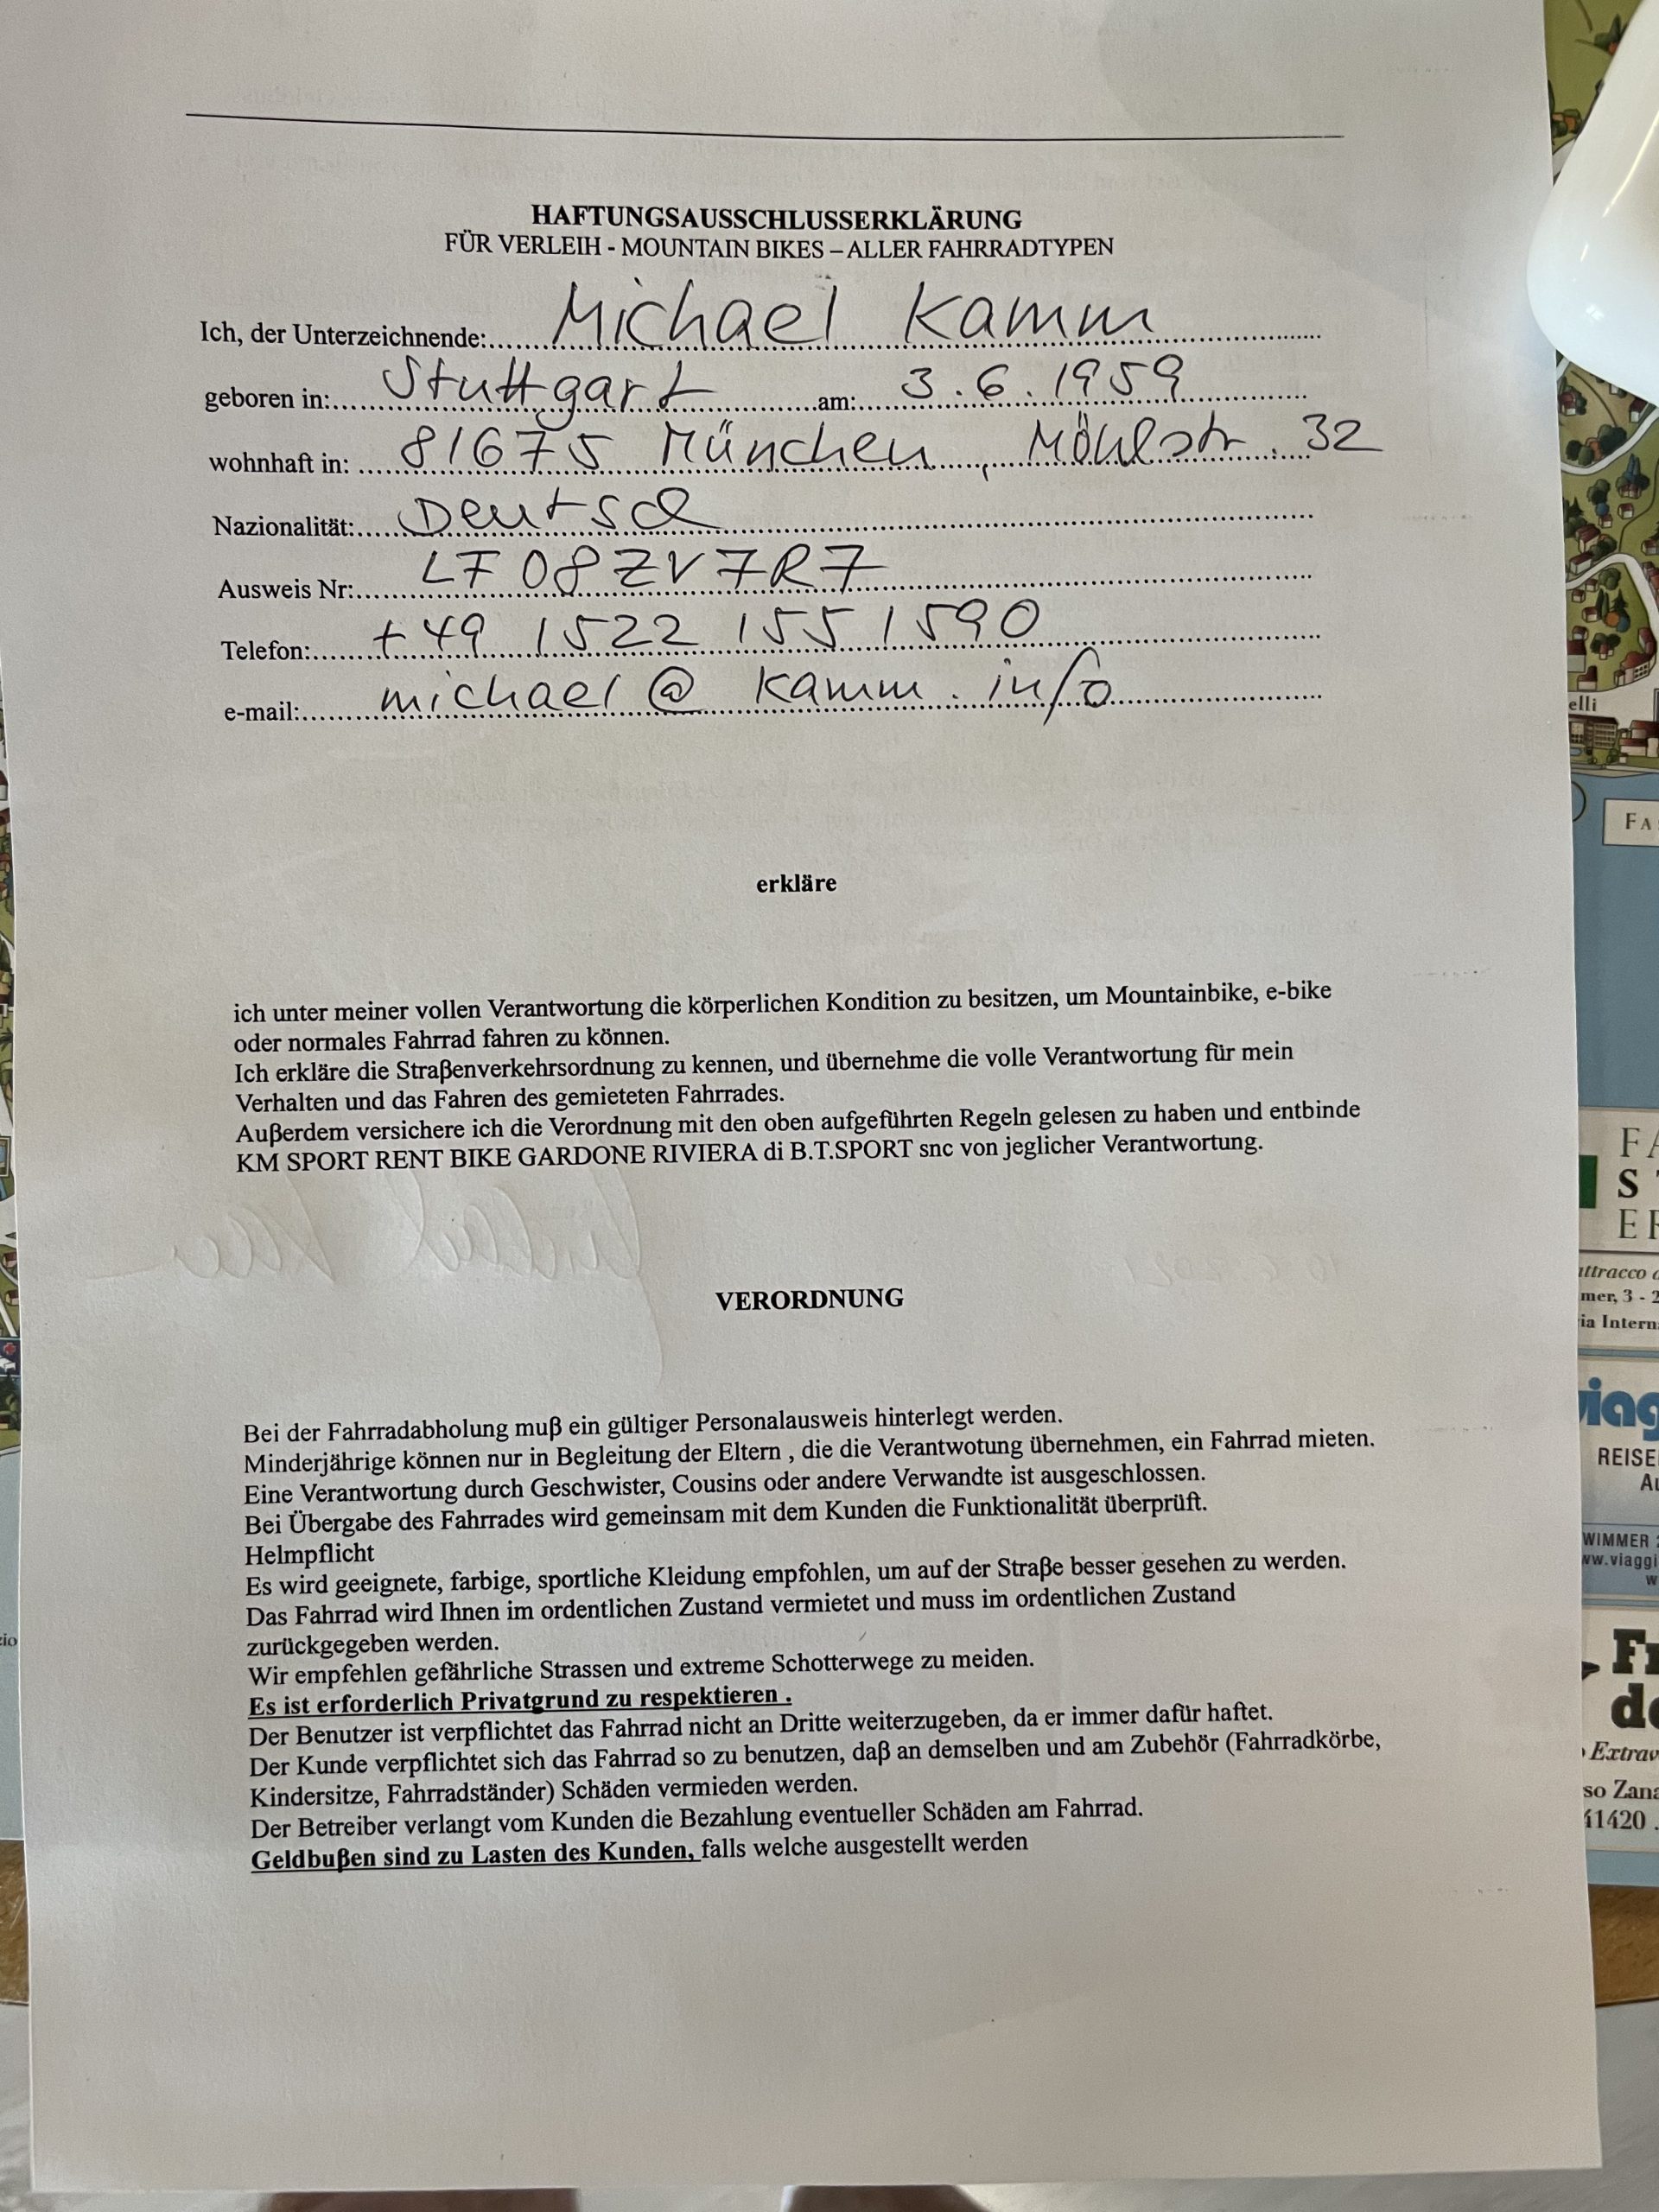 HAFTUNGSAUSSCHLUSSERKLÄRUNG
FÜR VERLEIH - MOUNTAIN BIKES – ALLER FAHRRADTYPEN
Ich, der Unterzeichnende: Michael Kamm
geboren in: Stuttgart am: 3.6.1959
wohnhaft in: 81675 München, Möhlstr. 32
Nazionalität: Deutsch
Ausweis Nr: LF08ZV7R7
Telefon: +49 1522 1551590
e-mail: michael@kamm.info
erkläre
ich unter meiner vollen Verantwortung die körperlichen Kondition zu besitzen, um Mountainbike, e-bike
oder normales Fahrrad fahren zu können.
Ich erkläre die Straßenverkehrsordnung zu kennen, und übernehme die volle Verantwortung für mein
Verhalten und das Fahren des gemieteten Fahrrades.
Außerdem versichere ich die Verordnung mit den oben aufgeführten Regeln gelesen zu haben und entbinde
KM SPORT RENT BIKE GARDONE RIVIERA di B.T.SPORT snc von jeglicher Verantwortung.
VERORDNUNG
Bei der Fahrradabholung muß ein gültiger Personalausweis hinterlegt werden.
Minderjährige können nur in Begleitung der Eltern , die die Verantwotung übernehmen, ein Fahrrad mieten.
Eine Verantwortung durch Geschwister, Cousins oder andere Verwandte ist ausgeschlossen.
Bei Übergabe des Fahrrades wird gemeinsam mit dem Kunden die Funktionalität überprüft.
Helmpflicht
Es wird geeignete, farbige, sportliche Kleidung empfohlen, um auf der Straße besser gesehen zu werden.
Das Fahrrad wird Ihnen im ordentlichen Zustand vermietet und muss im ordentlichen Zustand
zurückgegeben werden.
Wir empfehlen gefährliche Strassen und extreme Schotterwege zu meiden.
Es ist erforderlich Privatgrund zu respektieren .
Der Benutzer ist verpflichtet das Fahrrad nicht an Dritte weiterzugeben, da er immer dafür haftet.
Der Kunde verpflichtet sich das Fahrrad so zu benutzen, daß an demselben und am Zubehör (Fahrradkörbe,
Kindersitze, Fahrradständer) Schäden vermieden werden.
Der Betreiber verlangt vom Kunden die Bezahlung eventueller Schäden am Fahrrad.
Geldbußen sind zu Lasten des Kunden, falls welche ausgestellt werden
elli
FA
FA
S
EF
ttracco
mer, 3 - 2
ia Intern
viag
REISE
WIMMER
ww.viaggi
Extrav
so Zana
41420